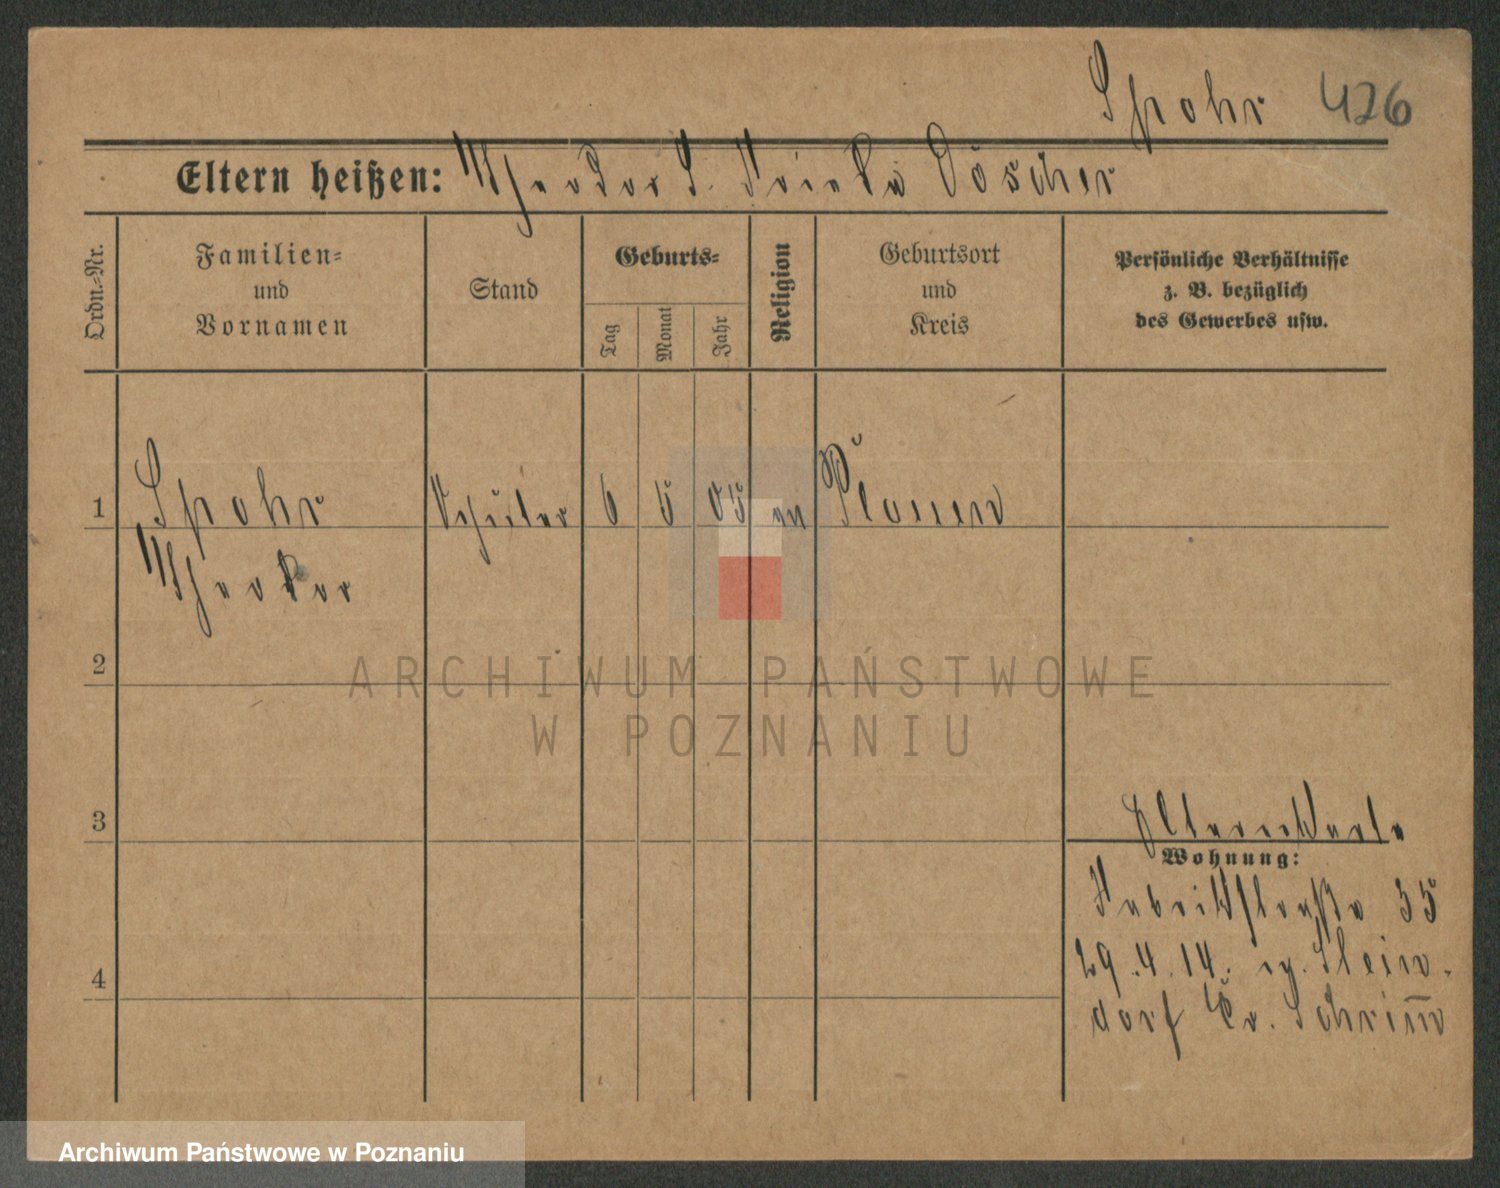 Spohr 426
Eltern heißen: Theodor S. Frieda Döscher
Ordn.-Nr.
Familien-
und
Vornamen
Stand
Geburts-
Tag
Monat
Jahr
Religion
Geburtsort
und
Kreis
Persönliche Verhältnisse
z. B. bezüglich
des Gewerbes usw.
1 Spohr Schüler 6 5 05 Plauen
Theodor
2
3
Wohnung:
Fabrikstraße 35
4
29.4.14.
dorf Kr. Schrimm
ARCHIWUM PAŃSTWOWE
W POZNANIU
Archiwum Państwowe w Poznaniu